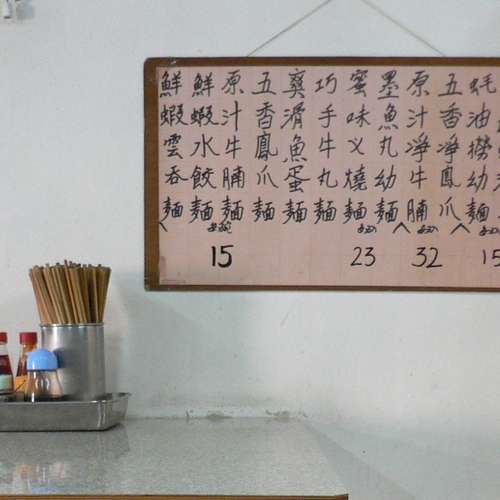 鮮蝦雲吞麵
鮮蝦水餃麵
原汁牛腩麵
五香鳳爪麵
爽滑魚蛋麵
巧手牛丸麵
15
蜜味义燒麵
墨魚丸幼麵
23
原汁淨牛腩
五香淨鳳爪
32
蚝油撈幼麵
15